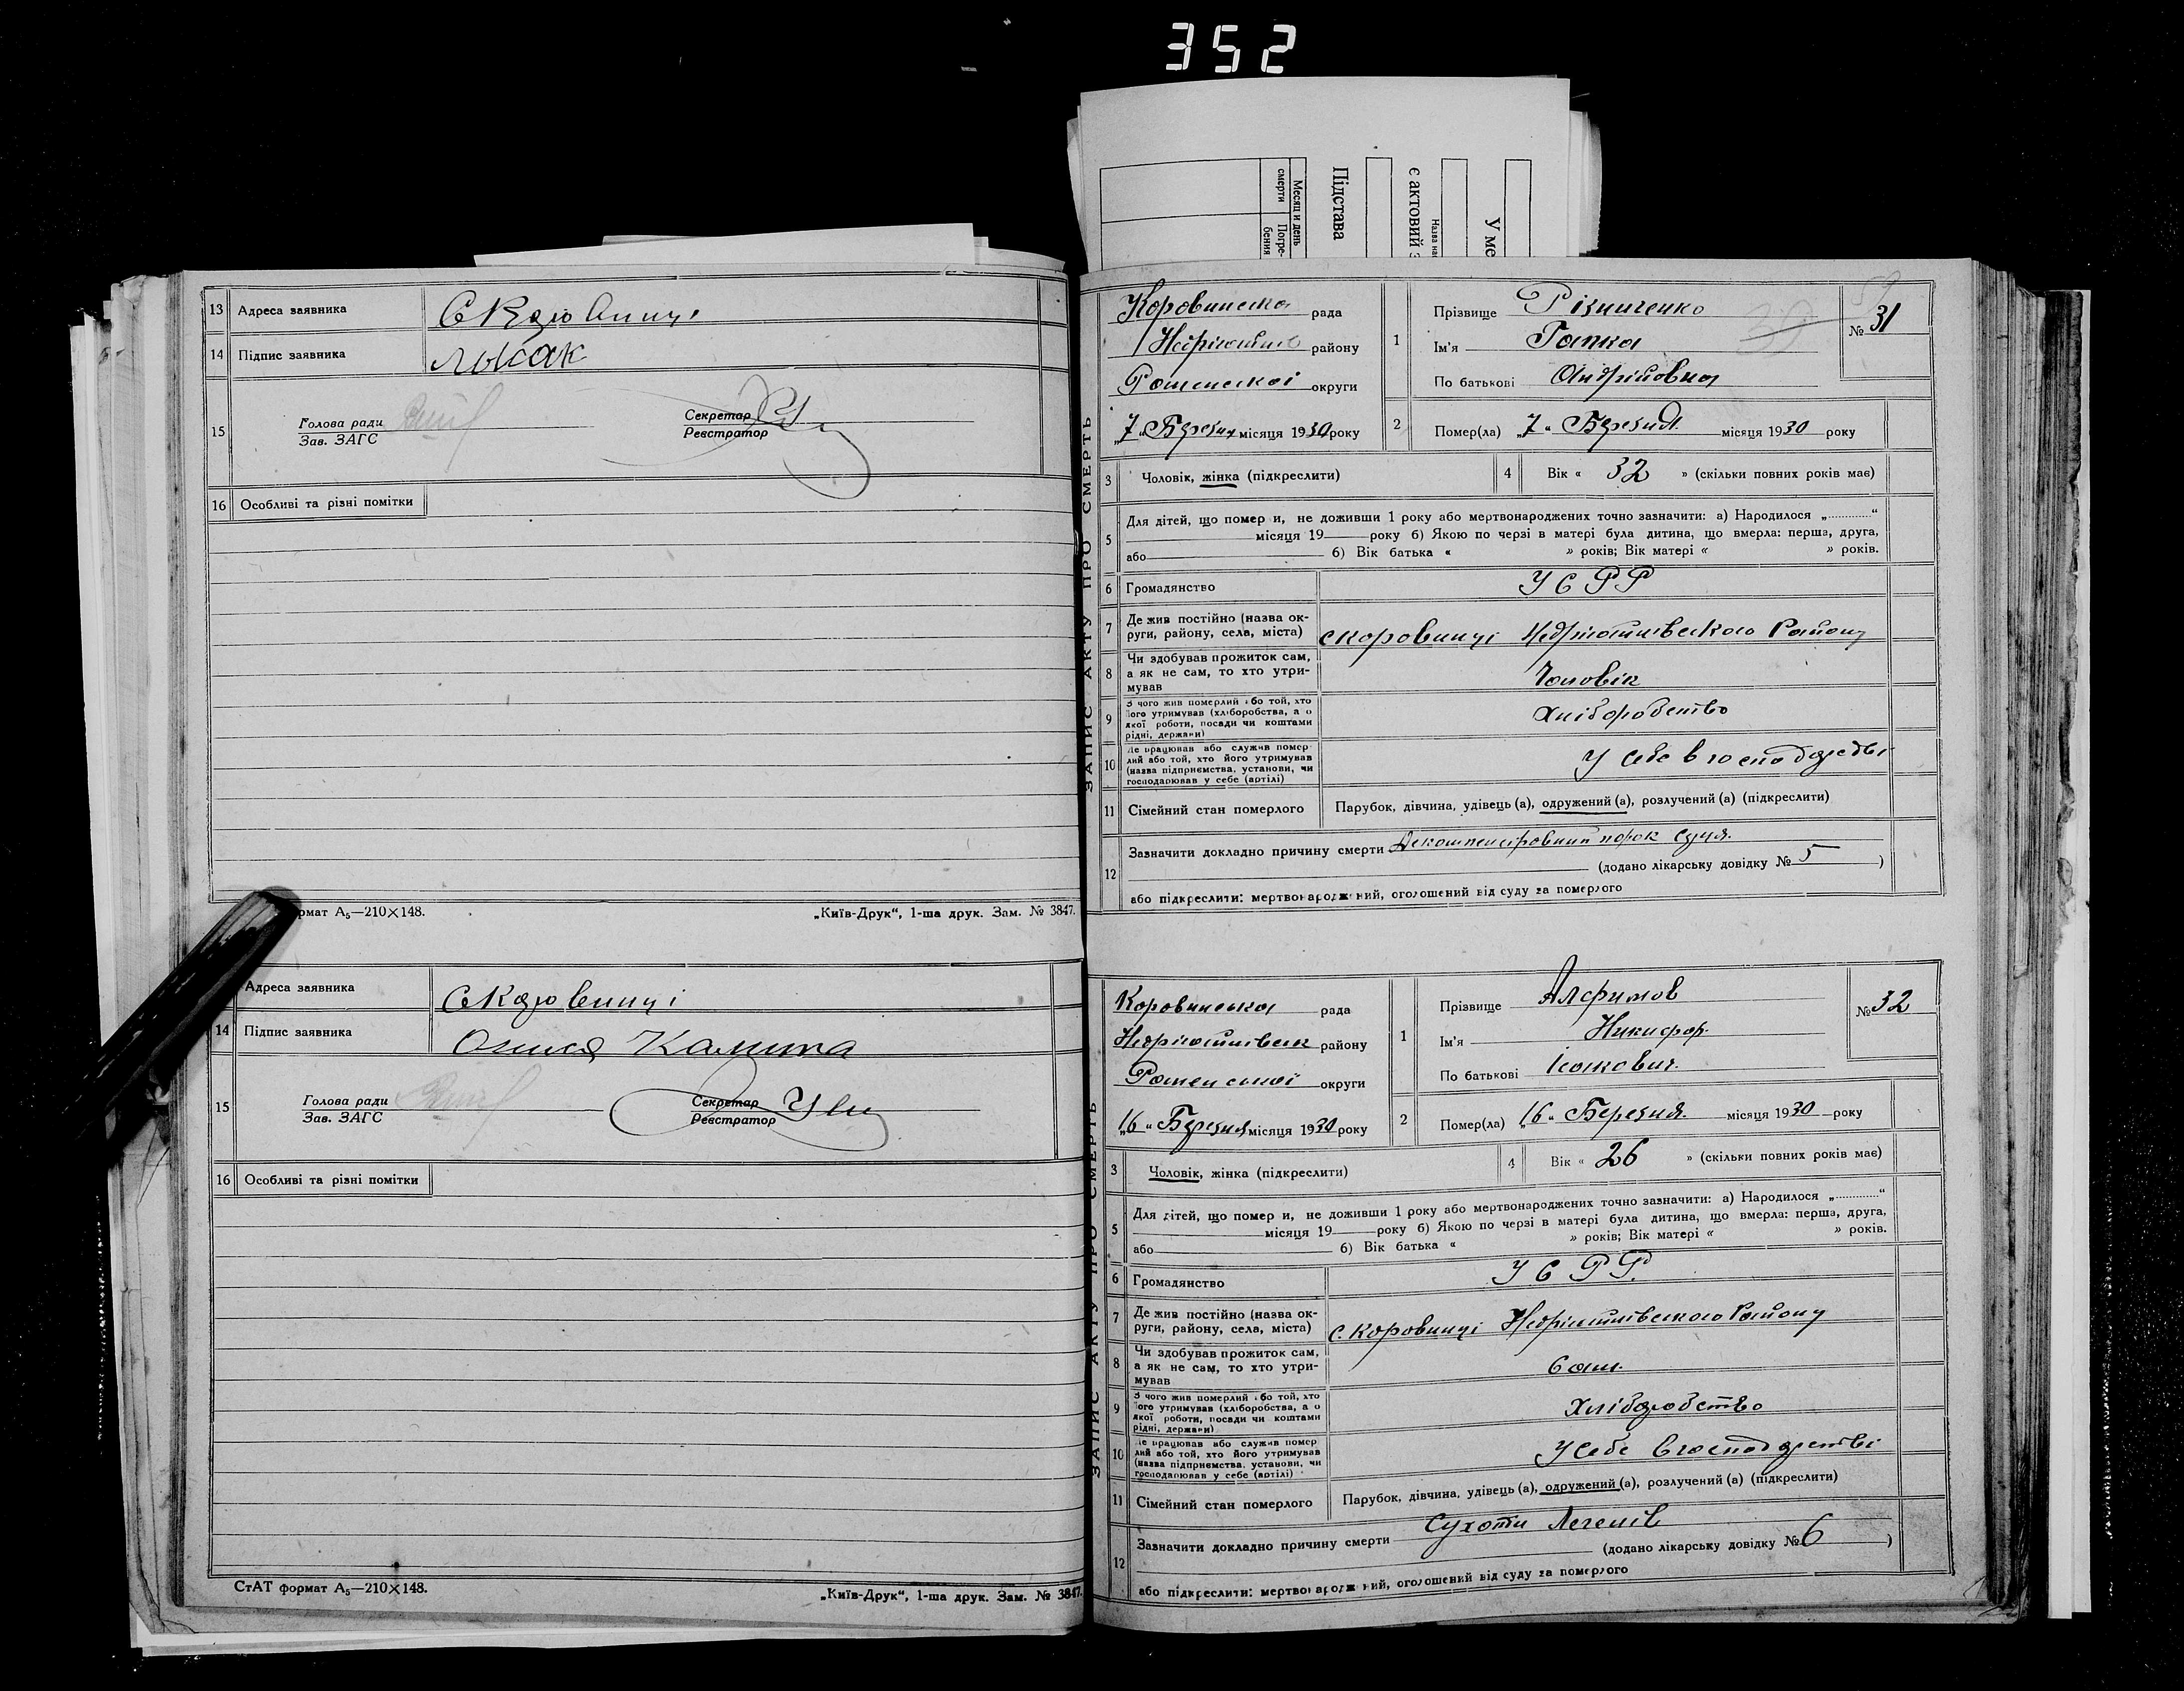 352
Месяц и день
смерти Погре-
бения
Підстава
є актовий з
Назва нас
У ме
13 Адреса заявника С Коровинці
14 Підпис заявника Лысак
15 Голова ради
Зав. ЗАГС
Секретар
Реєстратор
16 Особливі та різні помітки
формат А₅—210×148. „Київ-Друк“, 1-ша друк. Зам. № 3847.
Адреса заявника С Коровинці
14 Підпис заявника Калита
15 Голова ради
Зав. ЗАГС
Секретар
Реєстратор
16 Особливі та різні помітки
СтАТ формат А₅—210×148. „Київ-Друк“, 1-ша друк. Зам. № 3847.
ЗАПИС АКТУ ПРО СМЕРТЬ
Коровинська рада
району
Роменської округи
„7“ Березня місяця 1930 року
1 Прізвище Різниченко
Ім'я Гапка
По батькові Андрійовна
№ 31
2 Помер(ла) „7“ Березня місяця 1930 року
3 Чоловік, жінка (підкреслити)
4 Вік « 32 » (скільки повних років має)
5 Для дітей, що помер и, не доживши 1 року або мертвонароджених точно зазначити: а) Народилося „............“
місяця 19 року б) Якою по черзі в матері була дитина, що вмерла: перша, друга,
або б) Вік батька « » років; Вік матері « » років.
6 Громадянство УСРР
7 Де жив постійно (назва ок-
руги, району, села, міста) с Коровинці Недригайлівського Району
8 Чи здобував прожиток сам,
а як не сам, то хто утри-
мував Чоловік
9 З чого жив померлий або той, хто
його утримував (хліборобства, а о
якої роботи, посади чи коштами
рідні, держави) Хліборобство
10 Де працював або служив помер-
лий або той, хто його утримував
(назва підприємства, установи, чи
господарював у себе (артілі) У себе в господарстві
11 Сімейний стан померлого Парубок, дівчина, удівець (а), одружений (а), розлучений (а) (підкреслити)
12 Зазначити докладно причину смерти Декомпенсіровний порок серця.
(додано лікарську довідку № 5 )
або підкреслити: мертвонароджений, оголошений від суду за померлого
ЗАПИС АКТУ ПРО СМЕРТЬ
Коровинська рада
Недригайлівськ району
Роменської округи
„16“ Березня місяця 1930 року
1 Прізвище Алфимов
Ім'я Никифор.
По батькові Ісакович.
№ 32
2 Помер(ла) „16“ Березня. місяця 1930 року
3 Чоловік, жінка (підкреслити)
4 Вік « 26 » (скільки повних років має)
5 Для дітей, що помер и, не доживши 1 року або мертвонароджених точно зазначити: а) Народилося „............“
місяця 19 року б) Якою по черзі в матері була дитина, що вмерла: перша, друга,
або б) Вік батька « » років; Вік матері « » років.
6 Громадянство УСРР.
7 Де жив постійно (назва ок-
руги, району, села, міста) с. Коровинці Недригайлівського Району
8 Чи здобував прожиток сам,
а як не сам, то хто утри-
мував Сам.
9 З чого жив померлий або той, хто
його утримував (хліборобства, а о
якої роботи, посади чи коштами
рідні, держави) Хліборобство
10 Де працював або служив помер
лий або той, хто його утримував
(назва підприємства, установи, чи
господарював у себе (артілі) У себе в господарстві
11 Сімейний стан померлого Парубок, дівчина, удівець (а), одружений (а), розлучений (а) (підкреслити)
12 Зазначити докладно причину смерти Сухоти Легенів
(додано лікарську довідку № 6 )
або підкреслити: мертвонароджений, оголошений від суду за померлого